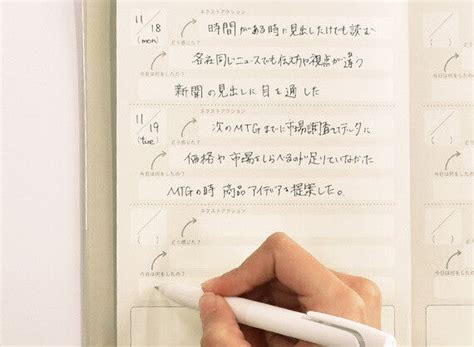 ネクストアクション
11/18 (mon) 時間がある時に見出しだけでも読む
どう感じた?
各社同じニュースでも伝え方や視点が違う
今日は何をしたの?
新聞の見出しに目を通した
ネクストアクション
11/19 (tue) 次のMTGまでに市場調査してデータに
どう感じた?
価格や市場をしらべるのが足りていなかった
今日は何をしたの?
MTGの時 商品アイデアを提案した。
ネクストアクション
/ ( )
どう感じた?
今日は何をしたの?